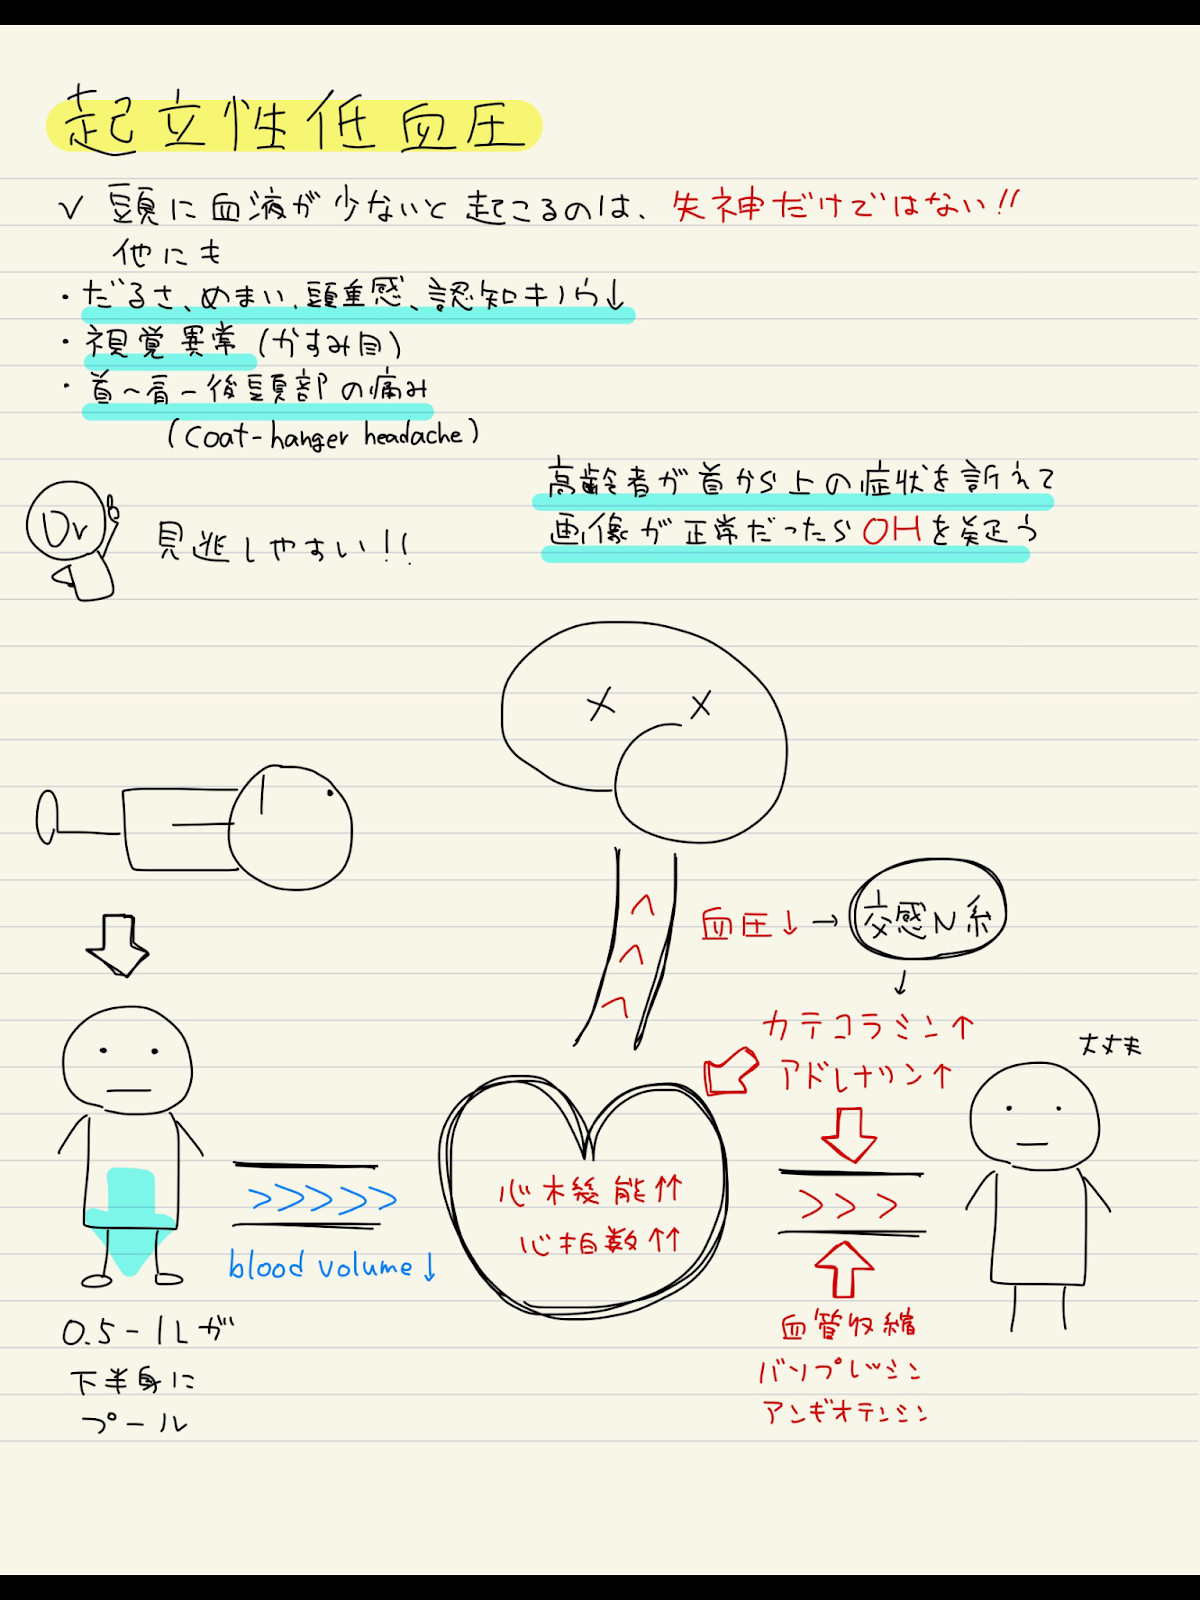 起立性低血圧
✓ 頭に血液が少ないと起こるのは、失神だけではない!!
他にも
・だるさ、めまい、頭重感、認知キノウ↓
・視覚異常(かすみ目)
・首〜肩ー後頭部の痛み
(coat-hanger headache)
高齢者が首から上の症状を訴えて
画像が正常だったらOHを疑う
Dr
見逃しやすい!!
血圧↓→交感N系
↓
カテコラミン↑
アドレナリン↑
大丈夫
心機能↑↑
心拍数↑↑
blood volume↓
0.5-1Lが
下半身に
プール
血管収縮
バソプレッシン
アンギオテンシン